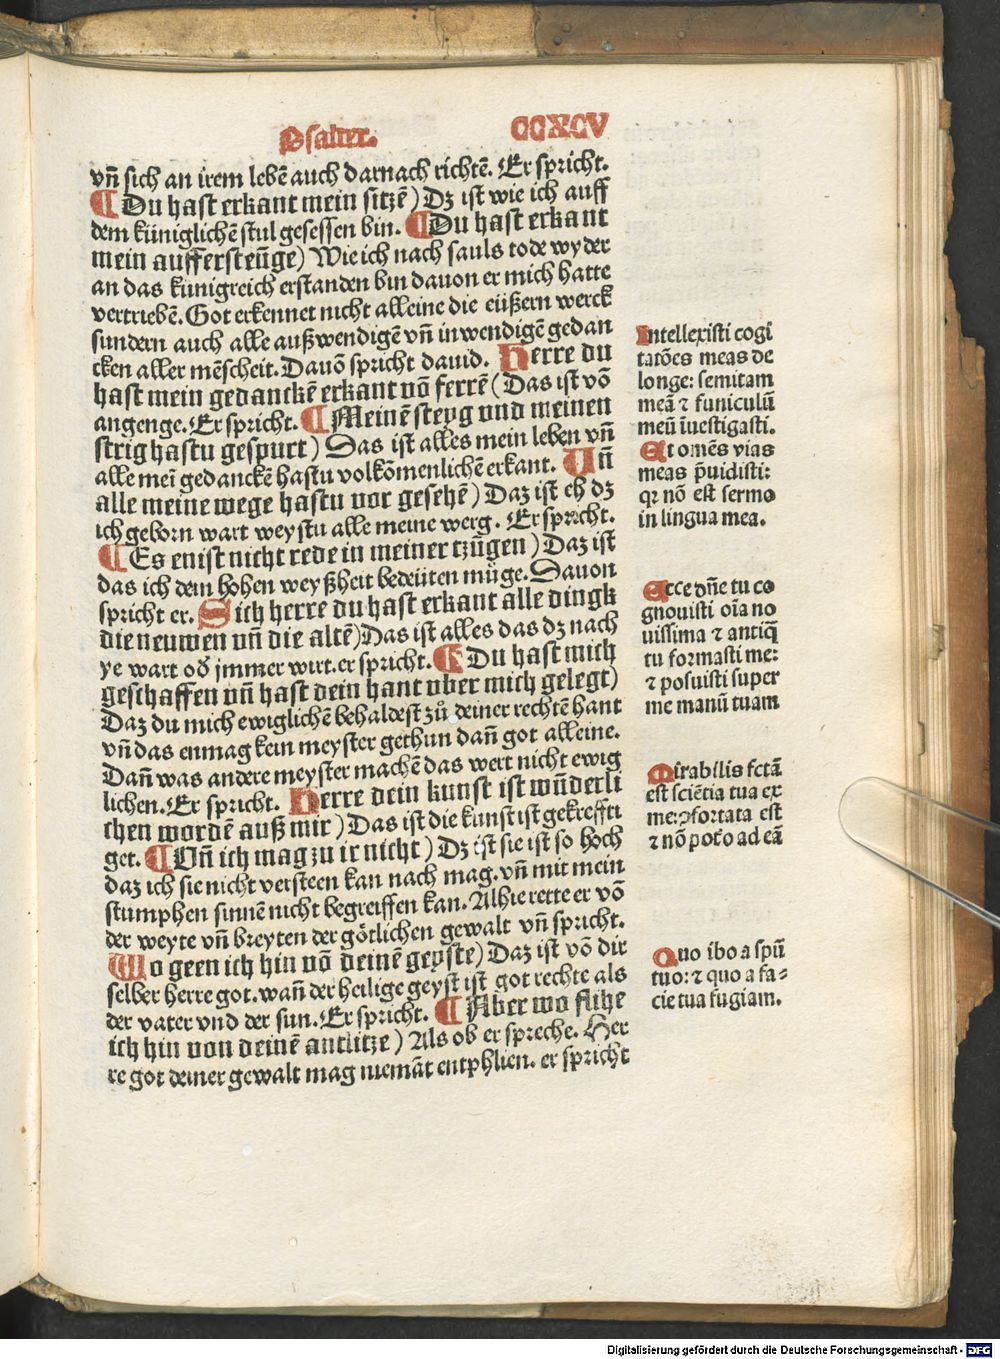 Psalter. CCXCV
vñ sich an irem lebē auch darnach richtē. Er spricht.
¶ Du hast erkant mein sitzē) Dz ist wie ich auff
dem küniglichē stul gesessen bin. ¶ Du hast erkant
mein auffersteüge) Wie ich nach sauls tode wyder
an das künigreich erstanden bin dauon er mich hatte
vertriebē. Got erkennet nicht alleine die eüßern werck
sundern auch alle außwendigē vñ inwendigē gedan
cken aller mēscheit. Dauō spricht dauid. Herre du
hast mein gedanckē erkant vō ferrē (Das ist vō
angenge. Er spricht. ¶ Meinē steyg vnd meinen
strig hastu gespurt) Das ist alles mein leben vñ
alle mei gedanckē hastu volkōmenlichē erkant. Uñ
alle meine wege hastu vor gesehē) Daz ist eh dz
ich geborn wart weystu alle meine werg. Er spricht.
¶ Es enist nicht rede in meiner tzūgen) Daz ist
das ich dem hohen weyßheit bedeüten müge. Dauon
spricht er. Sich herre du hast erkant alle dingk
die neuwen vñ die altē) Das ist alles das dz nach
ye wart od̄ jmmer wirt. er spricht. ¶ Du hast mich
geschaffen vñ hast dein hant vber mich gelegt)
Daz du mich ewiglichē behaldest zů deiner rechtē hant
vñ das enmag kein meyster gethun dañ got alleine.
Dañ was andere meyster machē das wert nicht ewig
lichen. Er spricht. Herre dein kunst ist wūderli
chen wordē auß mir) Das ist die kunst ist gekreffti
get. ¶ Uñ ich mag zu ir nicht) Dz ist sie ist so hoch
daz ich sie nicht versteen kan nach mag. vñ mit mein
stumphen sinnē nicht begreiffen kan. Alhie rette er vō
der weyte vñ breyten der götlichen gewalt vñ spricht.
Wo geen ich hin vō deinē geyste) Daz ist vō dir
selber herre got. wañ der heilige geyst ist got rechte als
der vater vnd der sun. Er spricht. ¶ Aber wo flihe
ich hin von deinē antlitze) Als ob er spreche. Her
re got deiner gewalt mag niemāt entphlien. er spricht
Intellexisti cogi
tatōes meas de
longe: semitam
meā ⁊ funiculū
meū īuestigasti.
Et omēs vias
meas p̄uidisti:
qꝛ nō est sermo
in lingua mea.
Ecce dn̄e tu co
gnouisti oīa no
uissima ⁊ antiq̄
tu formasti me:
⁊ posuisti super
me manū tuam
Mirabilis fctā
est sciētia tua ex
me: ꝯfortata est
⁊ nō potᷣo ad eā
Quo ibo a spū
tuo: ⁊ quo a fa⸗
cie tua fugiam.
Digitalisierung gefördert durch die Deutsche Forschungsgemeinschaft - DFG